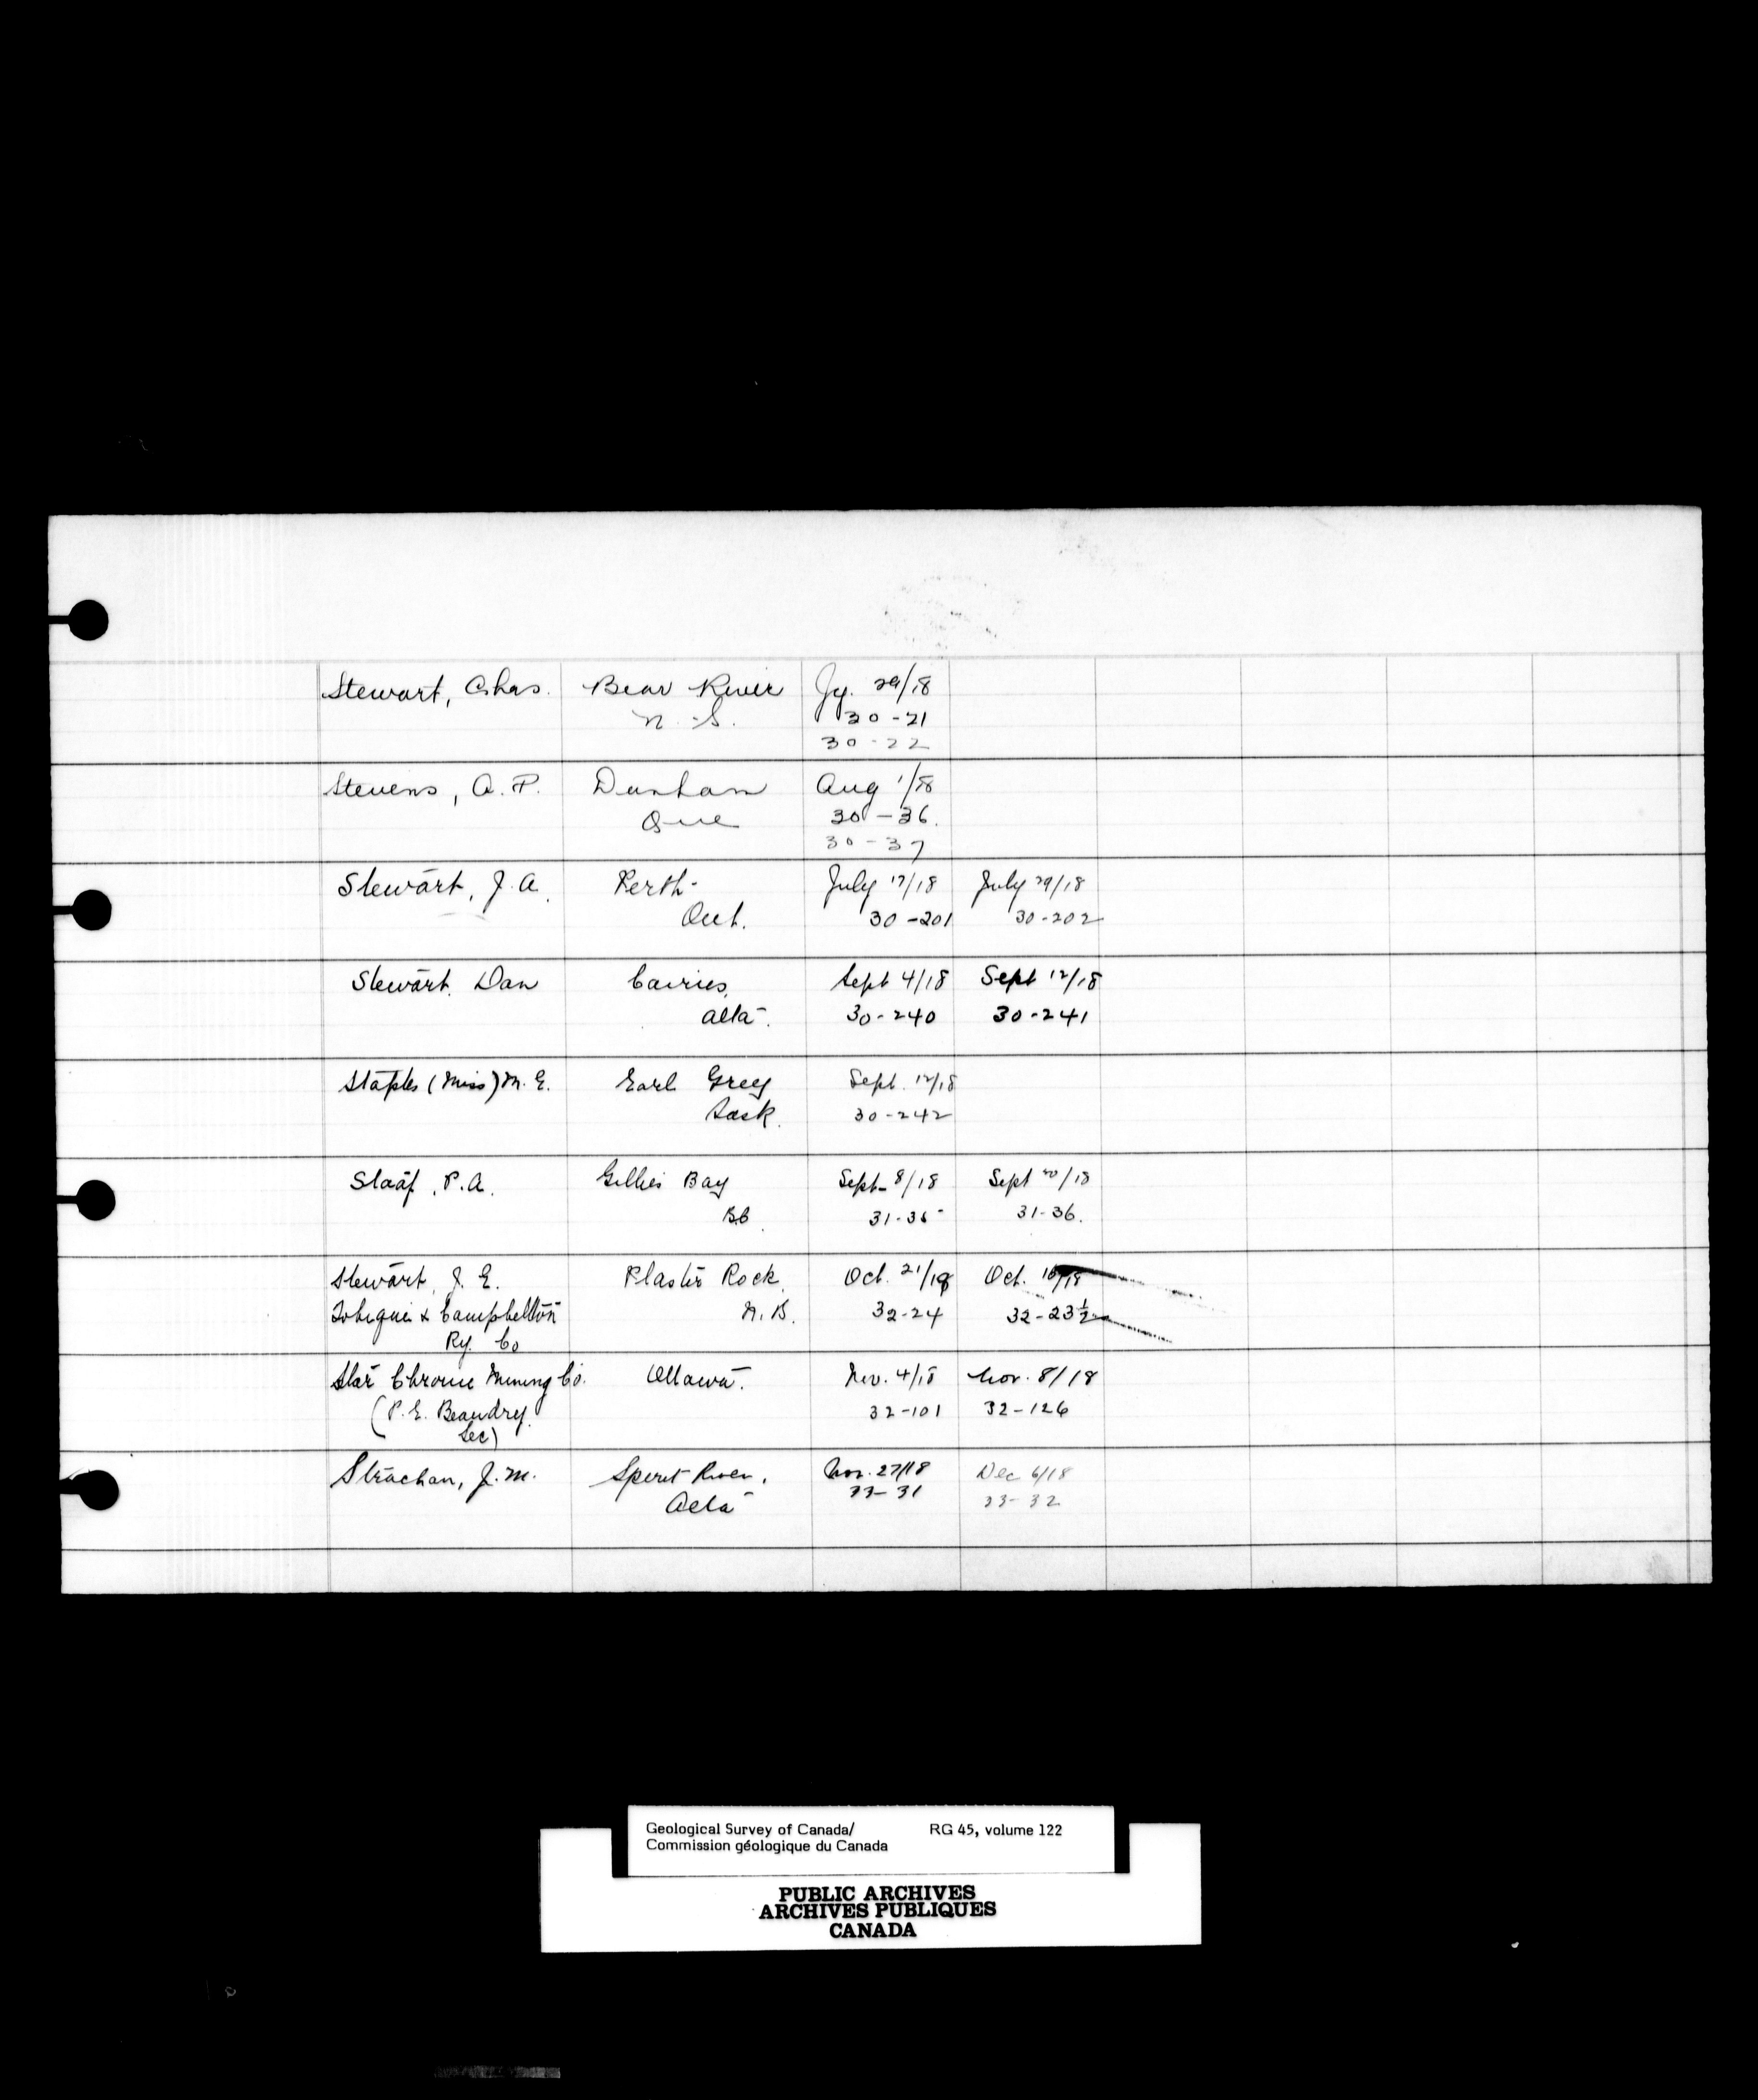 Stewart, Chas. Bear River Jy. 29/18
N.S. 30-21
30-22
Stevens, A.P. Dunham Aug 1/18
Que 30-36.
30-37
Stewart, J.A. Perth- July 17/18 July 29/18
Ont. 30-201 30-202
Stewart. Dan Cairies, Sept 4/18 Sept 12/18
Alta. 30-240 30-241
Staples (Miss) M.E. Earl Grey Sept. 12/18
Sask. 30-242
Staaf, P.A. Gillies Bay Sept 8/18 Sept 20/18
BC. 31-35 31-36.
Stewart, J.E. Plaster Rock Oct. 21/18 Oct. 18/18
Tobique & Campbellton N.B. 32-24 32-23½
Ry. Co
Star Chrome Mining Co. Ottawa. Nov. 4/18 Nov. 8/18
(P.E. Beaudry. 32-101 32-126
Sec)
Strachan, J.M. Spirit River, Nov. 27/18 Dec 6/18
Alta 33-31 33-32
Geological Survey of Canada/ RG 45, volume 122
Commission géologique du Canada
PUBLIC ARCHIVES
ARCHIVES PUBLIQUES
CANADA